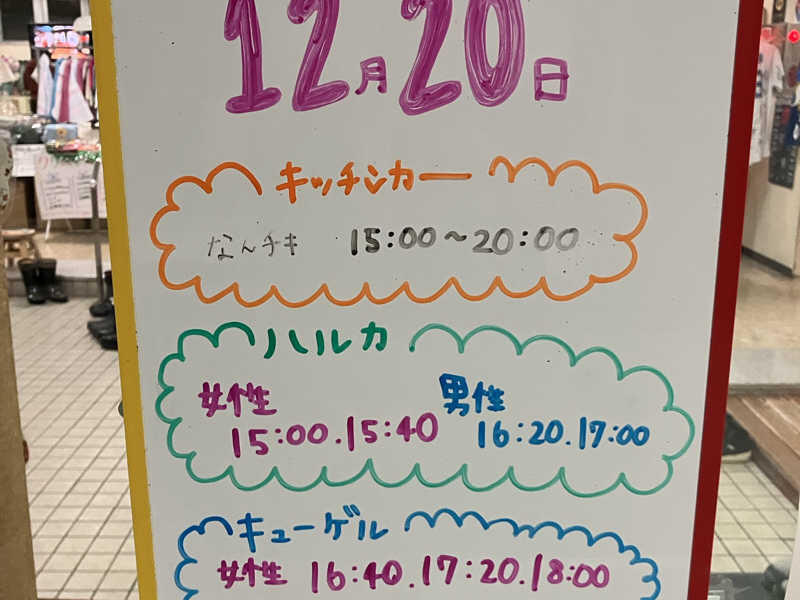 12月20日
キッチンカー
なんチキ 15:00~20:00
ハルカ
女性 男性
15:00.15:40 16:20.17:00
キューゲル
女性 16:40.17:20.18:00